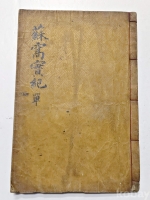 蘇窩實紀 單